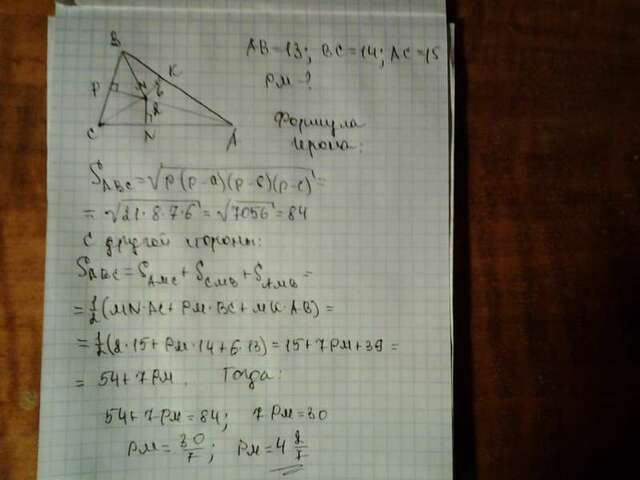 AB=13; BC=14; AC=15
PM-?
B
K
P
M
6
2
C
N
A
Формула
Герона:
S_ABC=√p(p-a)(p-b)(p-c)=
=√21·8·7·6=√7056=84
С другой стороны:
S_ABC=S_AMC+S_CMB+S_AMB=
=1/2(MN·AC+PM·BC+MK·AB)=
=1/2(2·15+PM·14+6·13)=15+7PM+39=
=54+7PM. Тогда:
54+7PM=84; 7PM=30
PM=30/7; PM=4 2/7